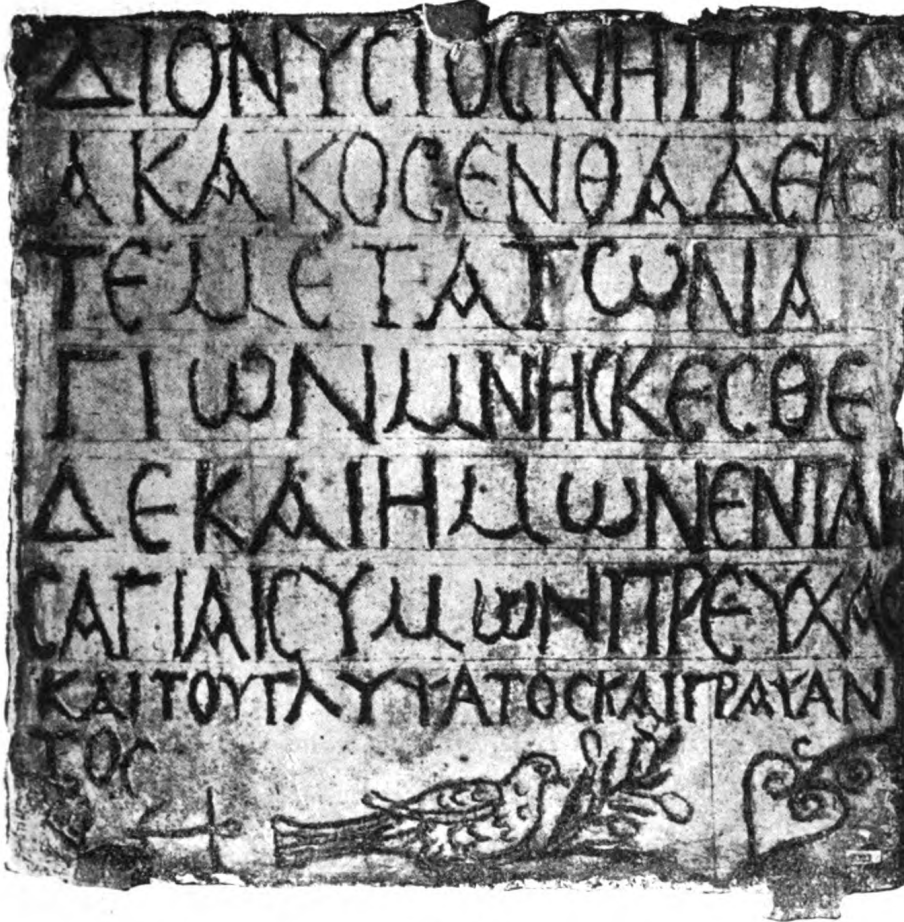 ΔΙΟΝΥCΙΟCΝΗΠΙΟC
ΑΚΑΚΟCΕΝΘΑΔΕΚΕΙ
ΤΕΜΕΤΑΤωΝΑ
ΓΙωΝΜΝΗCΚΕCΘΕ
ΔΕΚΑΙΗΜωΝΕΝΤΑΙ
CΑΓΙΑΙCΥΜωΝΠΡΕΥΧΑ
ΚΑΙΤΟΥΓΛΥΨΑΤΟCΚΑΙΓΡΑΨΑΝ
ΤΟC